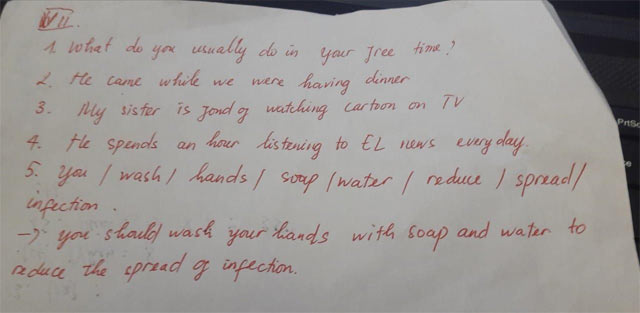 VII.
1. What do you usually do in your free time?
2. He came while we were having dinner
3. My sister is fond of watching cartoon on TV
4. He spends an hour listening to EL news everyday.
5. You / wash / hands / soap / water / reduce / spread /
infection.
→ you should wash your hands with soap and water to
reduce the spread of infection.
PrtSc